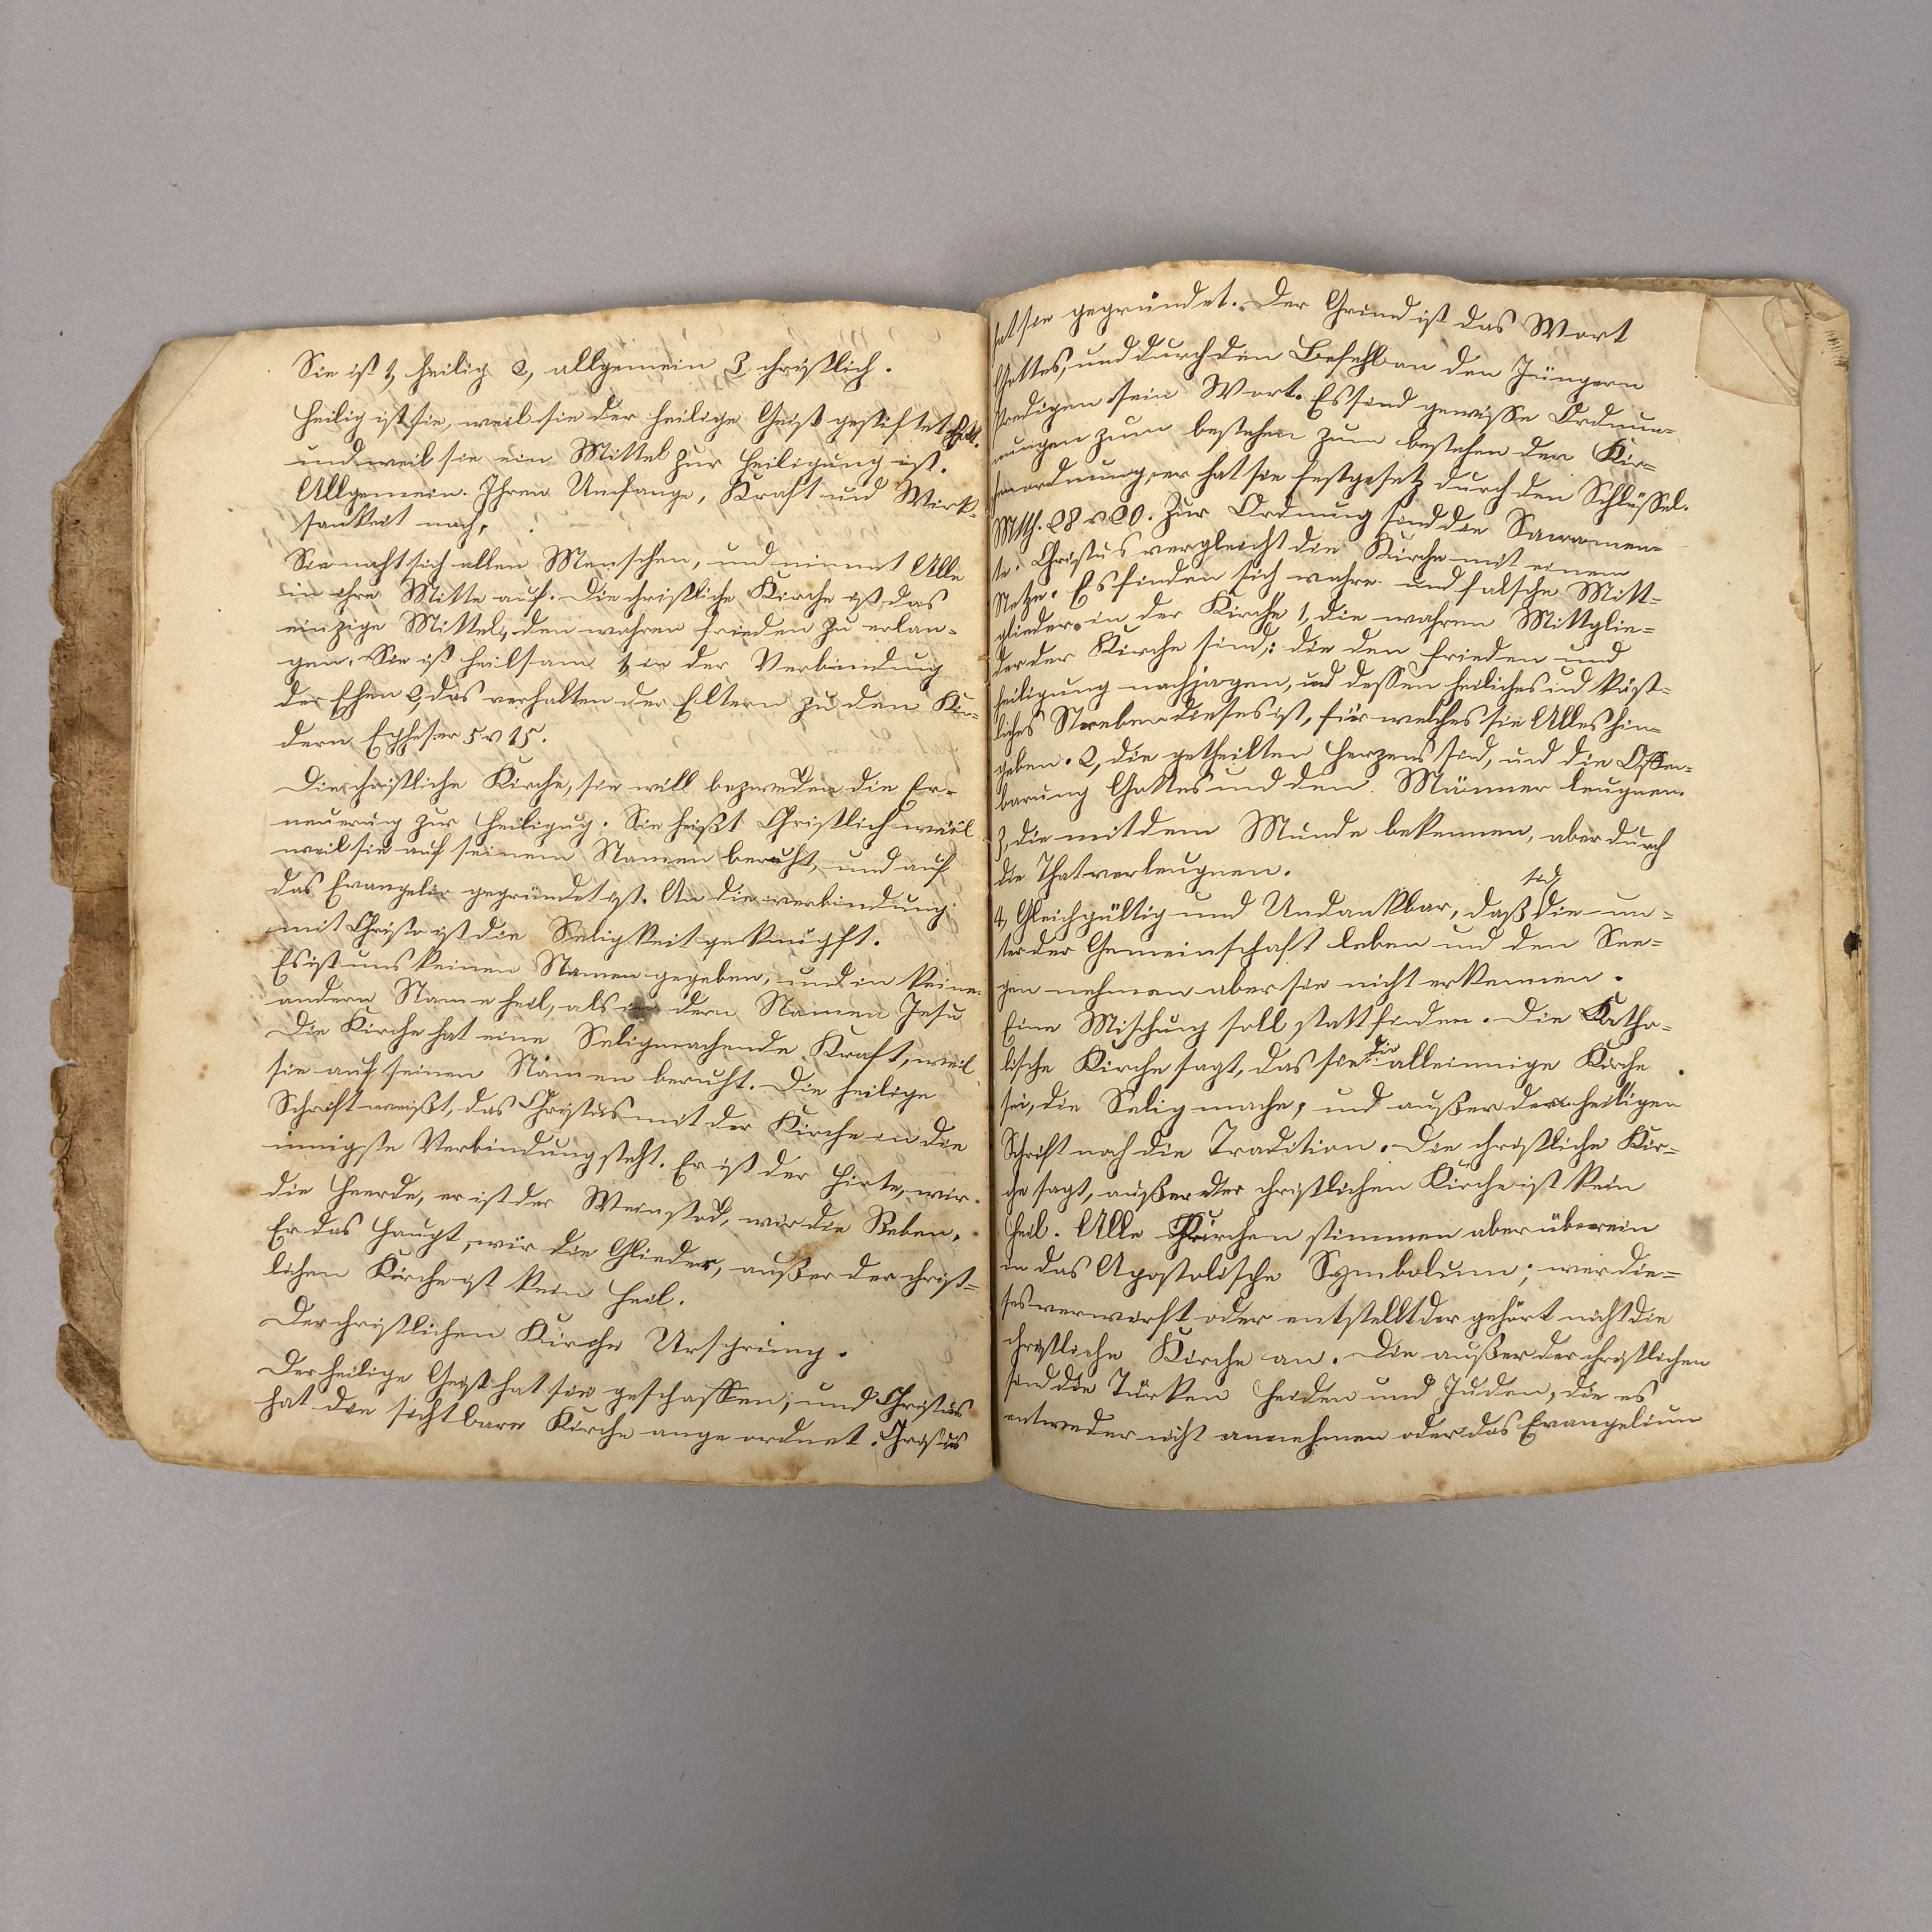 Sie ist 1, heilig 2, allgemein 3 christlich.
Heilig ist sie, weil sie der heilige Geist gestiftet hat.
und weil sie ein Mittel zur Heiligung ist.
Allgemein. Ihren Umfange, Kraft und Wirk-
samkeit nach,
Sie naht sich allen Menschen, und nimmt Alle
in ihre Mitte auf. Die christliche Kirche ist das
einzige Mittel, den wahren Frieden zu erlan-
gen. Sie ist heilsam 1, in der Verbindung
der Ehen 2, das verhalten der Eltern zu den Kin-
dern Epheser 5 v 15.
Die christliche Kirche, sie will bezwecken die Er-
neuerung zur Heiligug. Sie heißt Christlich weil
weil sie auf seinem Namen beruht, und auf
das Evangelio gegründet ist. An die verbindung
mit Christo ist die Seligkeit geknüpft.
Es ist uns keinen Namen gegeben, und in keinen
andern Name Heil, als in dem Namen Jesu
Die Kirche hat eine Seligmachende Kraft, weil
sie auf seinen Namen beruht. Die heilige
Schrift weißt, das Christus mit der Kirche in die
innigste Verbindung steht. Er ist der Hirte, wir
die Heerde, er ist der Weinstock, wir die Reben,
Er das Haupt, wir die Glieder, außer der christ-
lichen Kirche ist kein Heil.
Der christlichen Kirche Ursprung.
Der heilige Geist hat sie geschaffen; und Christus
hat die sichtbare Kirche ange ordnet. Christus
hat sie gegründet. Der Grund ist das Wort
Gottes, und durch den Befehl an den Jüngern
Predigen sein Wort. Es sind gewisse Ordnun-
nungen zum bestehen zum bestehen der Kir-
chenordnung, er hat sie festgesetz durch den Schlüssel.
Mtth. 28 v 20. Zur Ordnung sind die Sacramen-
te. Christus vergleicht die Kirche mit einem
Netze. Es finden sich wahre und falsche Mitt-
glieder in der Kirche 1, die wahren Mittglie-
der der Kirche sind: die den Frieden und
Heiligung nachjagen, und dessen heiliches und köst-
liches Streben dieses ist, für welches sie Alles hin-
geben. 2, die getheilten Herzens sind, und die Offen-
barung Gottes und den Männer leugnen.
3, die mit dem Munde bekennen, aber durch
die That verleugnen.
4, Gleichgültig und Undankbar, daß sind die un-
ter der Gemeinschaft leben und den See-
gen nehmen aber sie nicht erkennen.
Eine Mischung soll statt finden. Die Katho-
lische Kirche sagt, das sie die alleinnige Kirche
sei, die Selig mache, und außer der heiligen
Schrift noch die Tradition. Die christliche Kir-
che sagt, außer der christlichen Kirche ist kein
Heil. Alle Kirchen stimmen aber überein
in das Apostolische Symbolum; wer die-
ses verwirft oder entstellt der gehört nicht die
christliche Kirche an. Die außer der christlichen
sind die Türken Heiden und Juden, die es
entweder nicht annehmen oder das Evangelium